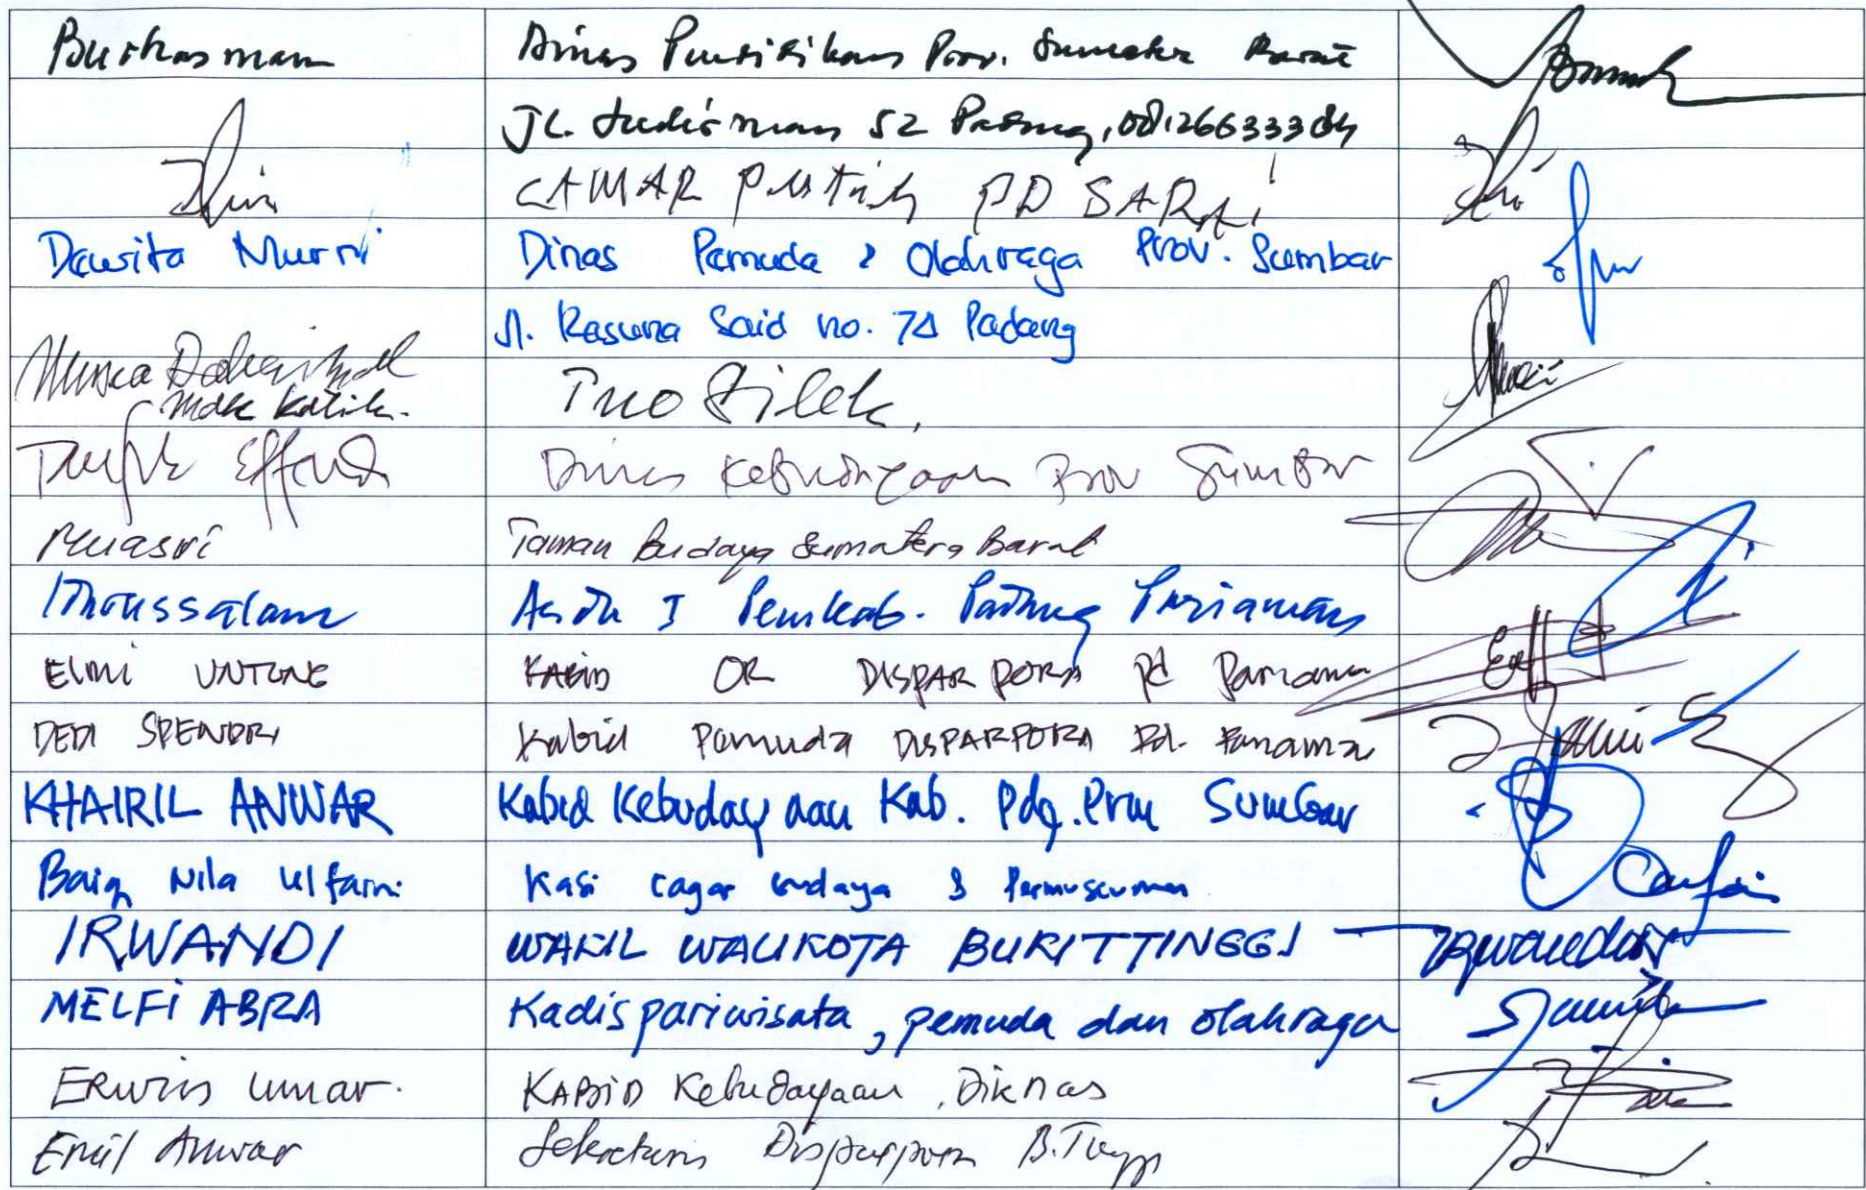 Burhasman Dinas Pendidikan Prov. Sumatera Barat
JL. Sudirman 52 Padang, 08126633384
CAMAR PUTIH PD SARAI
Dausita Murni Dinas Pemuda & Olahraga Prov. Sumbar
Jl. Rasuna Said no. 74 Padang
Musra Tuo Silek,
Mak Katik.
Taufik Effendi Dinas Kebudayaan Prov Sumbar
Muasri Taman Budaya Sumatera Barat
Idarussalam Asdn I Pemkab. Padang Pariaman
Elmi UNTUNG KABID OR DISPARPORA Pd Pariaman
DEDI SPENDRI Kabid Pemuda DISPARPORA Pd. Pariaman
KHAIRIL ANWAR Kabid Kebudayaan Kab. Pdg. Prm Sumbar
Baiq Nila Ulfaini Kasi cagar budaya & Permuseuman
IRWANDI WAKIL WALIKOTA BUKITTINGGI
MELFI ABRA Kadispariwisata, pemuda dan olahraga
ERwin Umar. KABID Kebudayaan, Diknas
Emil Anwar Sekretaris Disparpora B.Tinggi